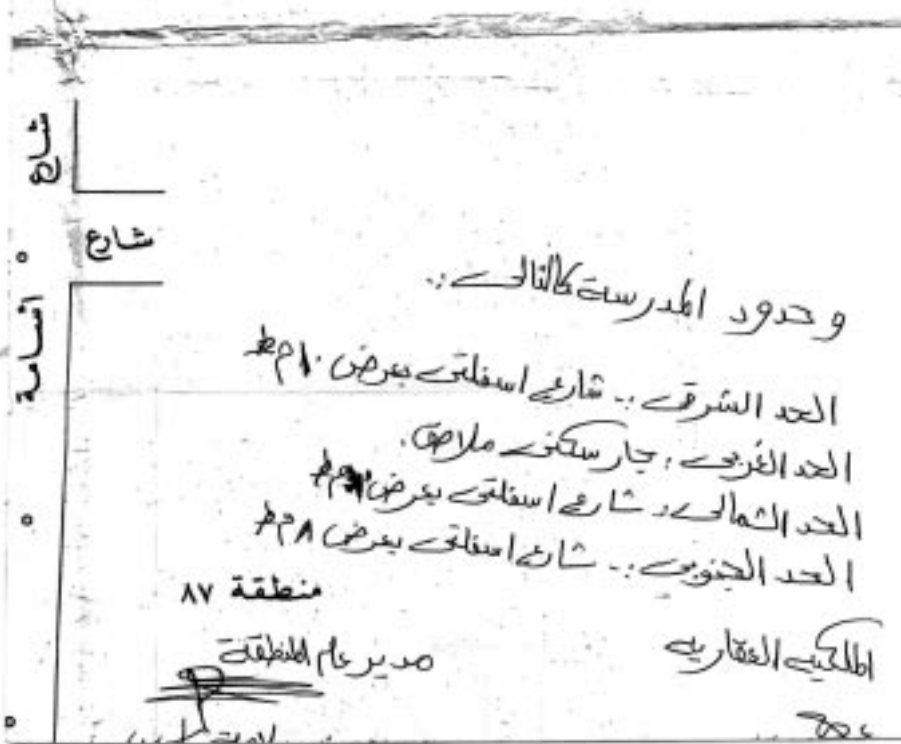 شارع
شارع
اسامة
وحدود المدرسة كالتالي :-
الحد الشرقي :- شارع اسفلتي بعرض ١٠م ط
الحد الغربي : جار سكني ملاصق.
الحد الشمالي : شارع اسفلتي بعرض
الحد الجنوبي :- شارع اسفلتي بعرض ٨م ط
منطقة ٨٧
الملكية العقارية
مدير عام المنطقة